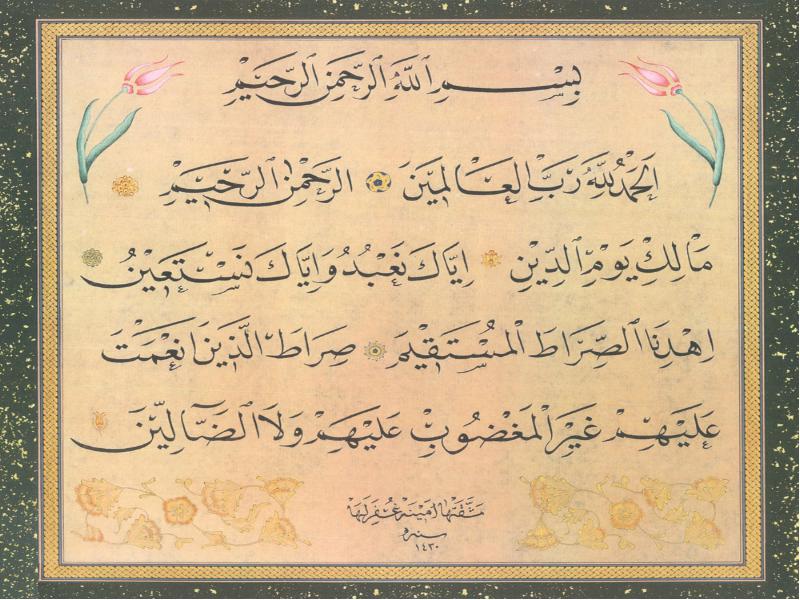 بِسْمِ اللَّهِ الرَّحْمَنِ الرَّحِيْمِ
اَلْحَمْدُ لِلَّهِ رَبِّ الْعَالَمِيْنَ الرَّحْمٰنِ الرَّحِيْمِ
مَالِكِ يَوْمِ الدِّيْنِ اِيَّاكَ نَعْبُدُ وَاِيَّاكَ نَسْتَعِيْنُ
اِهْدِنَا الصِّرَاطَ الْمُسْتَقِيْمَ صِرَاطَ الَّذِيْنَ اَنْعَمْتَ
عَلَيْهِمْ غَيْرِ الْمَغْضُوبِ عَلَيْهِمْ وَلَا الضَّآلِّيْنَ
مشقتها امينه غفر لها
سنه
١٤٣٠